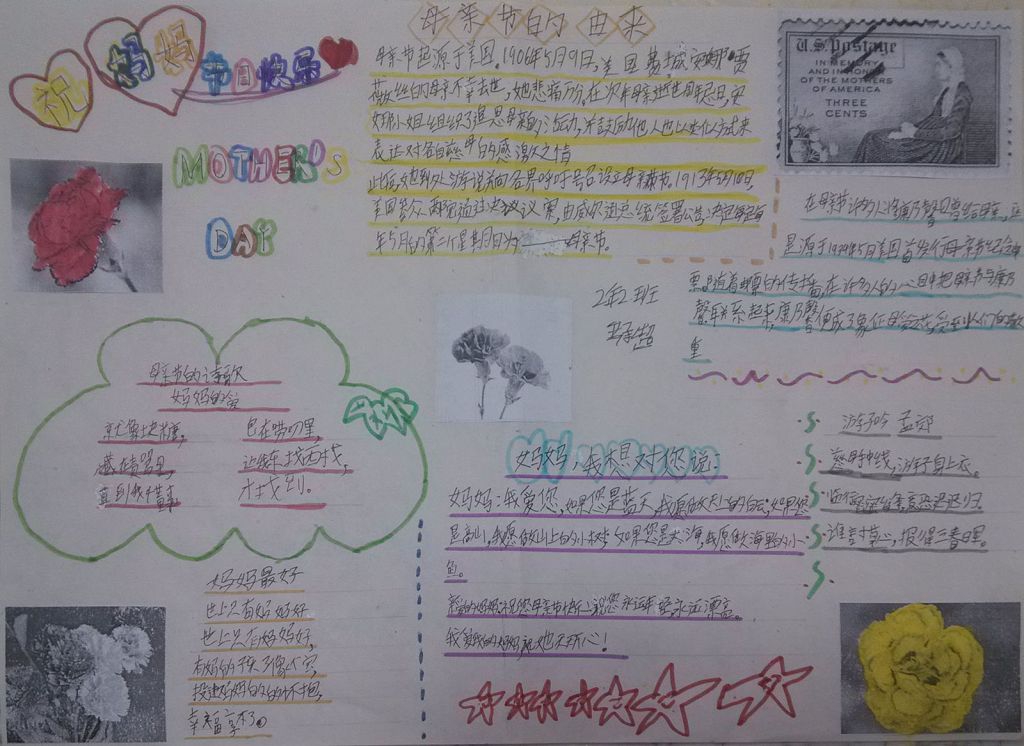 祝
妈妈
节日快乐
MOTHER'S
DAY
母亲节的由来
母亲节起源于美国。1906年5月9日,美国费城安娜·贾
薇丝的母亲不幸去世,她悲痛万分。在次年母亲逝世周年忌日,安
娜小姐组织了追思母亲的活动,并鼓励他人也以类似方式来
表达对各自慈母的感激之情
此后,她到处游说并向各界呼吁号召设立母亲节。1913年5月10日,
美国参众两院通过决议议案,由威尔逊总统签署公告,决定每
年5月的第二个星期日为母亲节。
U.S. Postage
IN MEMORY
AND IN HONOR
OF THE MOTHERS
OF AMERICA
THREE
CENTS
在母亲节许多人将康乃馨赠给母亲,
是源于1934年5月美国首发行母亲节纪念邮
票。随着邮票的传播,在许多人的心目中把母亲节与康乃
馨联系起来,康乃馨便成了象征母爱
2年2班
母亲节的诗歌
妈妈的爱
就像块糖,
藏在
直到我
包在唠叨里,
让我东找西找,
才找到。
妈妈,我想对您说:
妈妈:我爱您,如果您是蓝天,我愿做天上的白云;如果您
是高山,我愿做山上的小树;如果您是大海,我愿做海里的小
鱼。
我爱我的妈妈,祝她天天开心!
游子吟 孟郊
慈母手中线,游子身上衣。
临行密密缝,意恐迟迟归。
谁言寸草心,报得三春晖。
妈妈最好
世上只有妈妈好
世上只有妈妈好,
有妈的孩子像个宝,
投进妈妈的怀抱,
幸福享不了。